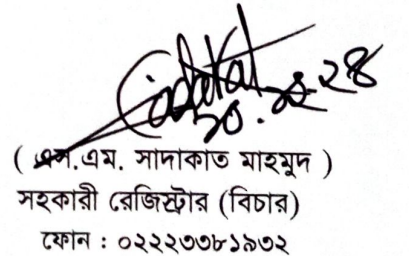 Sadakat
( এস.এম. সাদাকাত মাহমুদ )
সহকারী রেজিস্ট্রার (বিচার)
ফোন : ০২২২৩৩৮১৯৩২